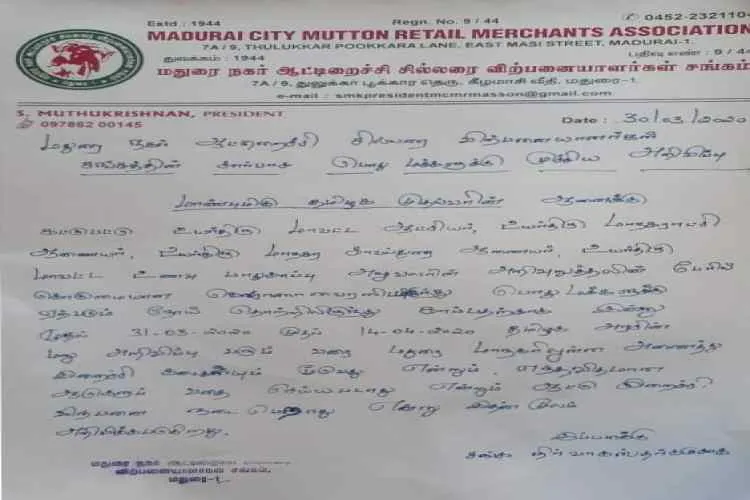 Estd : 1944 Regn. No. 9 / 44 0452-2321104
MADURAI CITY MUTTON RETAIL MERCHANTS ASSOCIATION
7A / 9, THULUKKAR POOKKARA LANE, EAST MASI STREET, MADURAI-1.
துவக்கம் : 1944 பதிவு எண் : 9 / 44
மதுரை நகர் ஆட்டிறைச்சி சில்லரை விற்பனையாளர்கள் சங்கம்
7A / 9, துலுக்கர் பூக்கார தெரு, கீழமாசி வீதி, மதுரை-1.
e-mail : smkpresidentmcmrmasson@gmail.com
S. MUTHUKRISHNAN, PRESIDENT
097862 00145 Date : 30/03/2020
மதுரை நகர் ஆட்டிறைச்சி சில்லரை விற்பனையாளர்கள்
சங்கத்தின் சார்பாக பொது மக்களுக்கு முக்கிய அறிவிப்பு
மாண்புமிகு தமிழக முதல்வரின் ஆணைக்கு
கட்டுபட்டு உயர்திரு மாவட்ட ஆட்சியர், உயர்திரு மாநகராட்சி
ஆணையர், உயர்திரு மாநகர காவல்துறை ஆணையர், உயர்திரு
மாவட்ட உணவு பாதுகாப்பு அலுவலரின் அறிவுறுத்தலின் பேரில்
கொடுமையான கொரோனா வைரஸிலிருந்து பொது மக்களுக்கு
ஏற்படும் நோய் தொற்றிலிருந்து காப்பதற்காக இன்று
முதல் 31-03-2020 முதல் 14-04-2020 தமிழக அரசின்
மறு அறிவிப்பு வரும் வரை மதுரை மாநகரிலுள்ள அனைத்து
இறைச்சி கடைகளையும் மூடுவது என்றும், எந்தவிதமான
ஆடுகளும் வதை செய்யபடாது என்றும் ஆட்டு இறைச்சி
விற்பனை நடைபெறாது என்று இதன் மூலம்
அறிவிக்கபடுகிறது.
இப்படிக்கு
சங்க நிர்வாகஸ்தர்களுக்காக
மதுரை நகர் ஆட்டிறைச்சி
விற்பனையாளர்கள் சங்கம்,
மதுரை-1